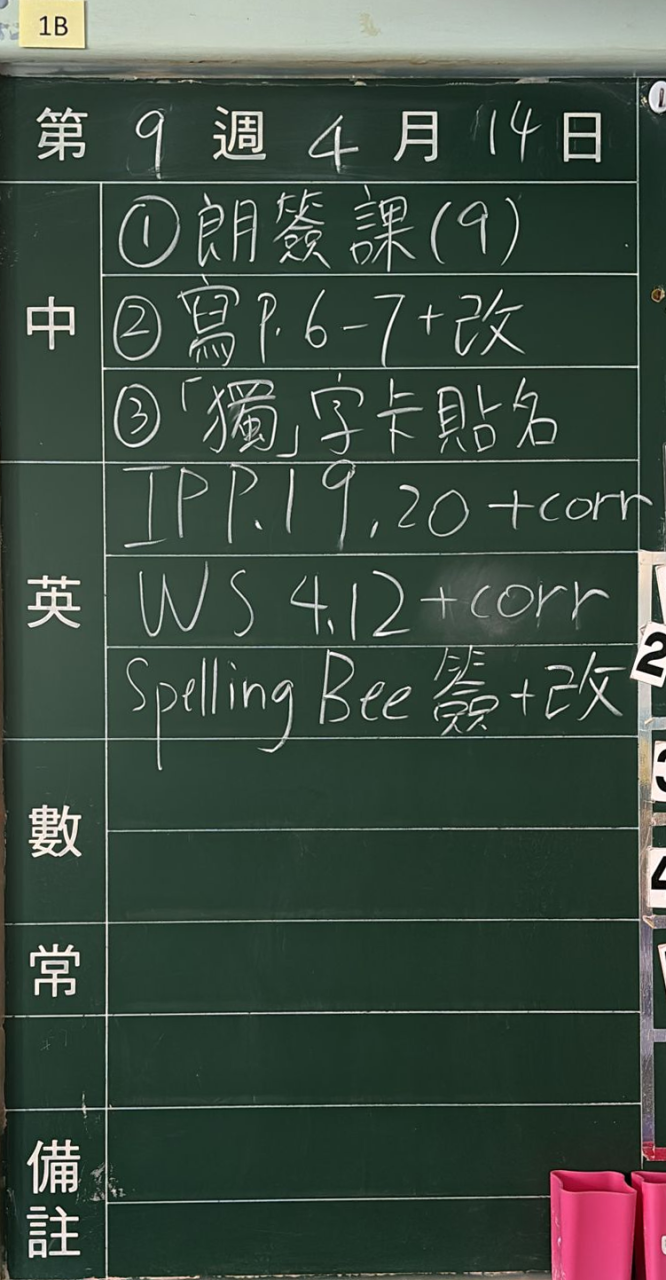 1B
第 9 週 4 月 14 日
中
①朗簽課(9)
②寫P.6-7+改
③「獨」字卡貼名
英
IPP.19,20+corr
WS 4.12+corr
Spelling Bee 簽+改
數
常
備註
2
3
4